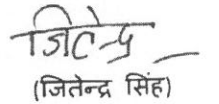 जितेन्द्र
(जितेन्द्र सिंह)